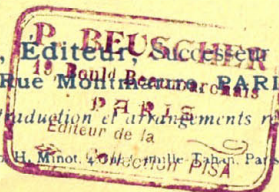 P. BEUSCHER
, Editeur, Successeur
19 Bould Beaumarchais
Rue Montmartre, PARI
PARIS
raduction et arrangements r
Editeur de la
Collection PISA
H. Minot, 4 Camille-Tahan, Par